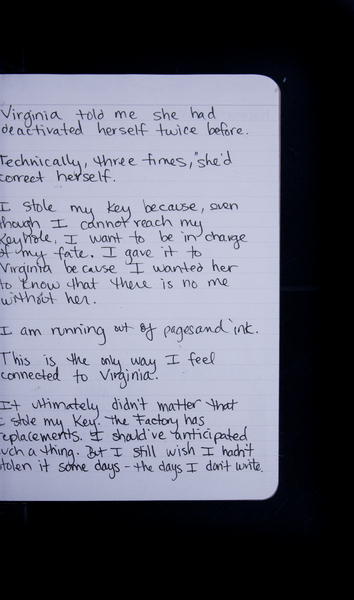 Virginia told me she had
deactivated herself twice before.
Technically, three times, "she'd
correct herself.
I stole my key because, even
though I cannot reach my
keyhole, I want to be in charge
of my fate. I gave it to
Virginia because I wanted her
to know that there is no me
without her.
I am running out of pages and ink.
This is the only way I feel
connected to Virginia.
It ultimately didn't matter that
I stole my key. The Factory has
replacements. I should've anticipated
such a thing. But I still wish I hadn't
stolen it some days - the days I don't write.